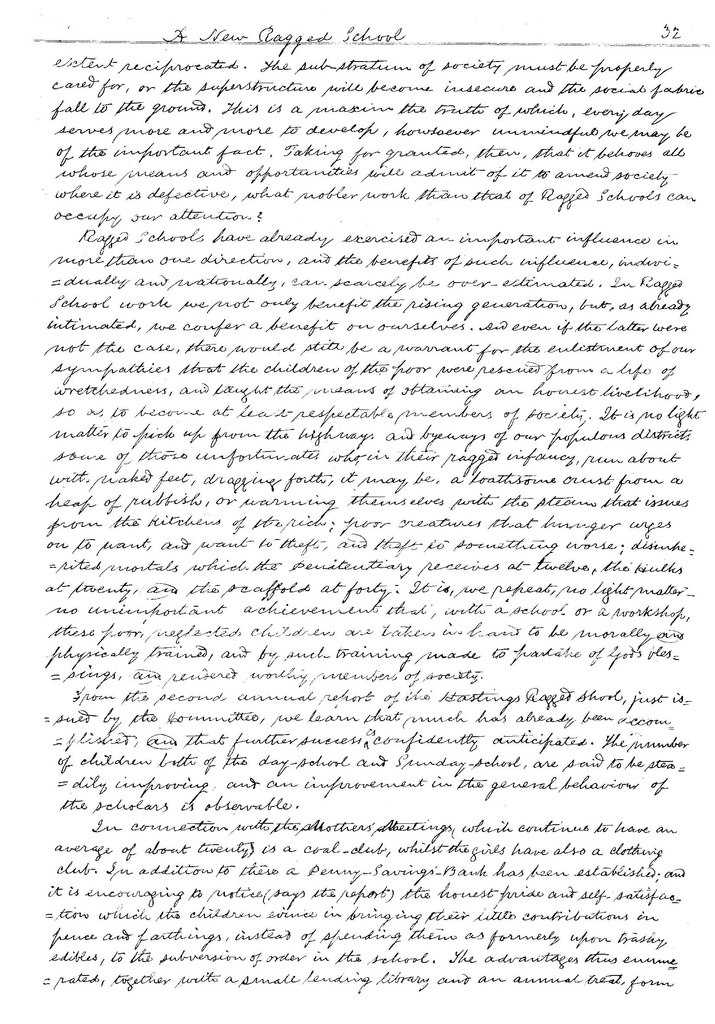 A New Ragged School 32
extent reciprocated. The sub-stratum of society must be properly
cared for, or the superstructure will become insecure and the social fabric
fall to the ground. This is a maxim the truth of which, every day
serves more and more to develop, howsoever unmindful we may be
of the important fact. Taking for granted, then, that it behoves all
whose means and opportunities will admit of it to amend society
where it is defective, what nobler work than that of Ragged Schools can
occupy our attention?
Ragged Schools have already exercised an important influence in
more than one direction, and the benefits of such influence, indivi=
=dually and nationally, can scarcely be over-estimated. In Ragged
School work we not only benefit the rising generation, but, as already
intimated, we confer a benefit on ourselves. And even if the latter were
not the case, there would still be a warrant for the enlistment of our
sympathies that the children of the poor were rescued from a life of
wretchedness, and taught the means of obtaining an honest livelihood,
so as to become at least respectable members of society. It is no light
matter to pick up from the highways and byeways of our populous districts
some of those unfortunates who, in their ragged infancy, run about
with naked feet, dragging forth, it may be, a loathsome crust from a
heap of rubbish, or warming themselves with the steam that issues
from the kitchens of the rich; poor creatures that hunger urges
on to want, and want to theft, and theft to something worse; disinhe=
=rited mortals which the penitentiary receives at twelve, the hulks
at twenty, and the scaffold at forty. It is, we repeat, no light matter-
no unimportant achievement that, with a school or a workshop,
these poor, neglected children are taken in hand to be morally and
physically trained, and by such training made to partake of God's bles=
=sings, and rendered worthy members of society.
From the second annual report of the Hastings Ragged Shool, just is=
=sued by the Kommittee, we learn that much has already been accom=
=plished, and that further success is confidently anticipated. The number
of children both of the day-school and Sunday-school, are said to be stea=
=dily improving and an improvement in the general behaviour of
the scholars is observable.
In connection with the Mothers' Meetings (which continue to have an
average of about twenty) is a coal-club, whilst the girls have also a clothing
club. In addition to these a Penny-Savings-Bank has been established, and
it is encouraging to notice (says the report) the honest pride and self-satisfac=
=tion which the children evince in bringing their little contributions in
pence and farthings, instead of spending them as formerly upon trashy
edibles, to the subversion of order in the school. The advantages thus enume
=rated, together with a small lending library and an annual treat, form